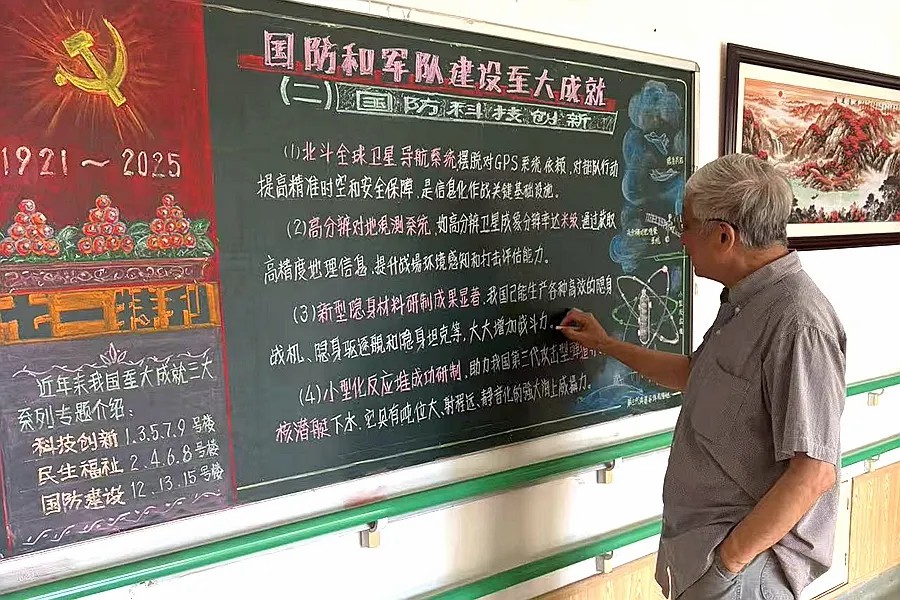 1921～2025
七一特刊
近年来我国重大成就三大
系列专题介绍：
科技创新 1.3.5.7.9 号楼
民生福祉 2.4.6.8 号楼
国防建设 12.13.15 号楼
国防和军队建设重大成就
(二) 国防科技创新
(1) 北斗全球卫星导航系统，摆脱对GPS系统依赖，对部队行动
提高精准时空和安全保障，是信息化作战关键基础设施。
(2) 高分辨对地观测系统，如高分辨卫星成象分辨率达米级，通过获取
高精度地理信息，提升战场环境感知和打击评估能力。
(3) 新型隐身材料研制成果显著，我国已能生产各种高效的隐身
战机、隐身驱逐舰和隐身坦克等，大大增加战斗力
(4) 小型化反应堆成功研制，助力我国第三代攻击型
核潜艇下水，它具有吨位大、射程远、静音化的强大海上威慑力。